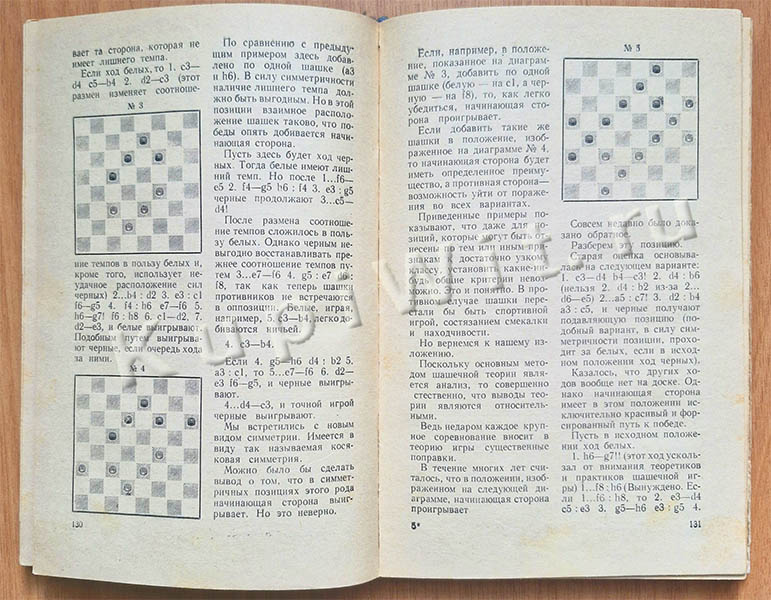 вает та сторона, которая не
имеет лишнего темпа.
Если ход белых, то 1. c3—
d4 c5—b4 2. d2—c3 (этот
размен изменяет соотноше-
№ 3
ние темпов в пользу белых и,
кроме того, использует не-
удачное расположение сил
черных) 2...b4 : d2 3. e3 : c1
f6—g5 4. f4 : h6 e7—f6 5.
h6—g7! f6 : h8 6. c1—d2, 7.
d2—e3, и белые выигрывают.
Подобным путем выигрыва-
ют черные, если очередь хода
за ними.
№ 4
130
По сравнению с предыду-
щим примером здесь добав-
лено по одной шашке (a3
и h6). В силу симметричности
наличие лишнего темпа дол-
жно быть выгодным. Но в этой
позиции взаимное располо-
жение шашек таково, что по-
беды опять добивается начи-
нающая сторона.
Пусть здесь будет ход чер-
ных. Тогда белые имеют лиш-
ний темп. Но после 1...f6—
e5 2. f4—g5 h6 : f4 3. e3 : g5
черные продолжают 3...c5—
d4!
После размена соотноше-
ние темпов сложилось в поль-
зу белых. Однако черным не-
выгодно восстанавливать пре-
жнее соотношение темпов пу-
тем 3...e7—f6 4. g5 : e7 d6 :
f8, так как теперь шашки
противников не встречаются
в оппозиции. Белые, играя,
например, 5. c3—b4, легко до-
биваются ничьей.
4. c3—b4.
Если 4. g5—h6 d4 : b2 5.
a3 : c1, то 5...e7—f6 6. d2—
e3 f6—g5, и черные выигры-
вают.
4...d4—c3, и точной игрой
черные выигрывают.
Мы встретились с новым
видом симметрии. Имеется в
виду так называемая кося-
ковая симметрия.
Можно было бы сделать
вывод о том, что в симмет-
ричных позициях этого рода
начинающая сторона выиг-
рывает. Но это неверно.
Если, например, в положе-
ние, показанное на диаграм-
ме № 3, добавить по одной
шашке (белую — на c1, а чер-
ную — на f8), то, как легко
убедиться, начинающая сто-
рона проигрывает.
Если добавить такие же
шашки в положение, изобра-
женное на диаграмме № 4,
то начинающая сторона будет
иметь определенное преиму-
щество, а противная сторона—
возможность уйти от пораже-
ния во всех вариантах.
Приведенные примеры по-
казывают, что даже для по-
зиций, которые могут быть от-
несены по тем или иным приз-
накам к достаточно узкому
установить какие-ни-
будь общие критерии невоз-
можно. Это и понятно. В про-
тивном случае шашки перес-
тали бы быть спортивной
игрой, состязанием смекалки
и находчивости.
Но вернемся к нашему из-
ложению.
Поскольку основным мето-
дом шашечной теории явля-
ется анализ, то совершенно
естественно, что выводы тео-
рии являются относитель-
ными.
Ведь недаром каждое круп-
ное соревнование вносит в
теорию игры существенные
поправки.
В течение многих лет счи-
талось, что в положении, изоб-
раженном на следующей ди-
аграмме, начинающая сторона
проигрывает
5*
№ 5
Совсем недавно было дока-
зано обратное.
Разберем эту позицию.
Старая оценка основыва-
лась на следующем варианте:
1. c3—d4 b4—c3! 2. d4 : b6
(нельзя 2. d4 : b2 из-за 2...
d6—e5) 2...a5 : c7! 3. d2 : b4
a3 : c5, и черные получают
подавляющую позицию (по-
добный вариант, в силу сим-
метричности позиции, прохо-
дит за белых, если в исход-
ном положении ход черных).
Казалось, что других хо-
дов вообще нет на доске. Од-
нако начинающая сторона
имеет в этом положении ис-
ключительно красивый и фор-
сированный путь к победе.
Пусть в исходном положе-
нии ход белых.
1. h6—g7!! (этот ход усколь-
зал от внимания теоретиков
и практиков шашечной иг-
ры) 1...f8 : h6 (Вынуждено. Ес-
ли 1...f6 : h8, то 2. e3—d4
c5 : e3 3. g5—h6 e3 : g5 4.
131
kupiwit.ru